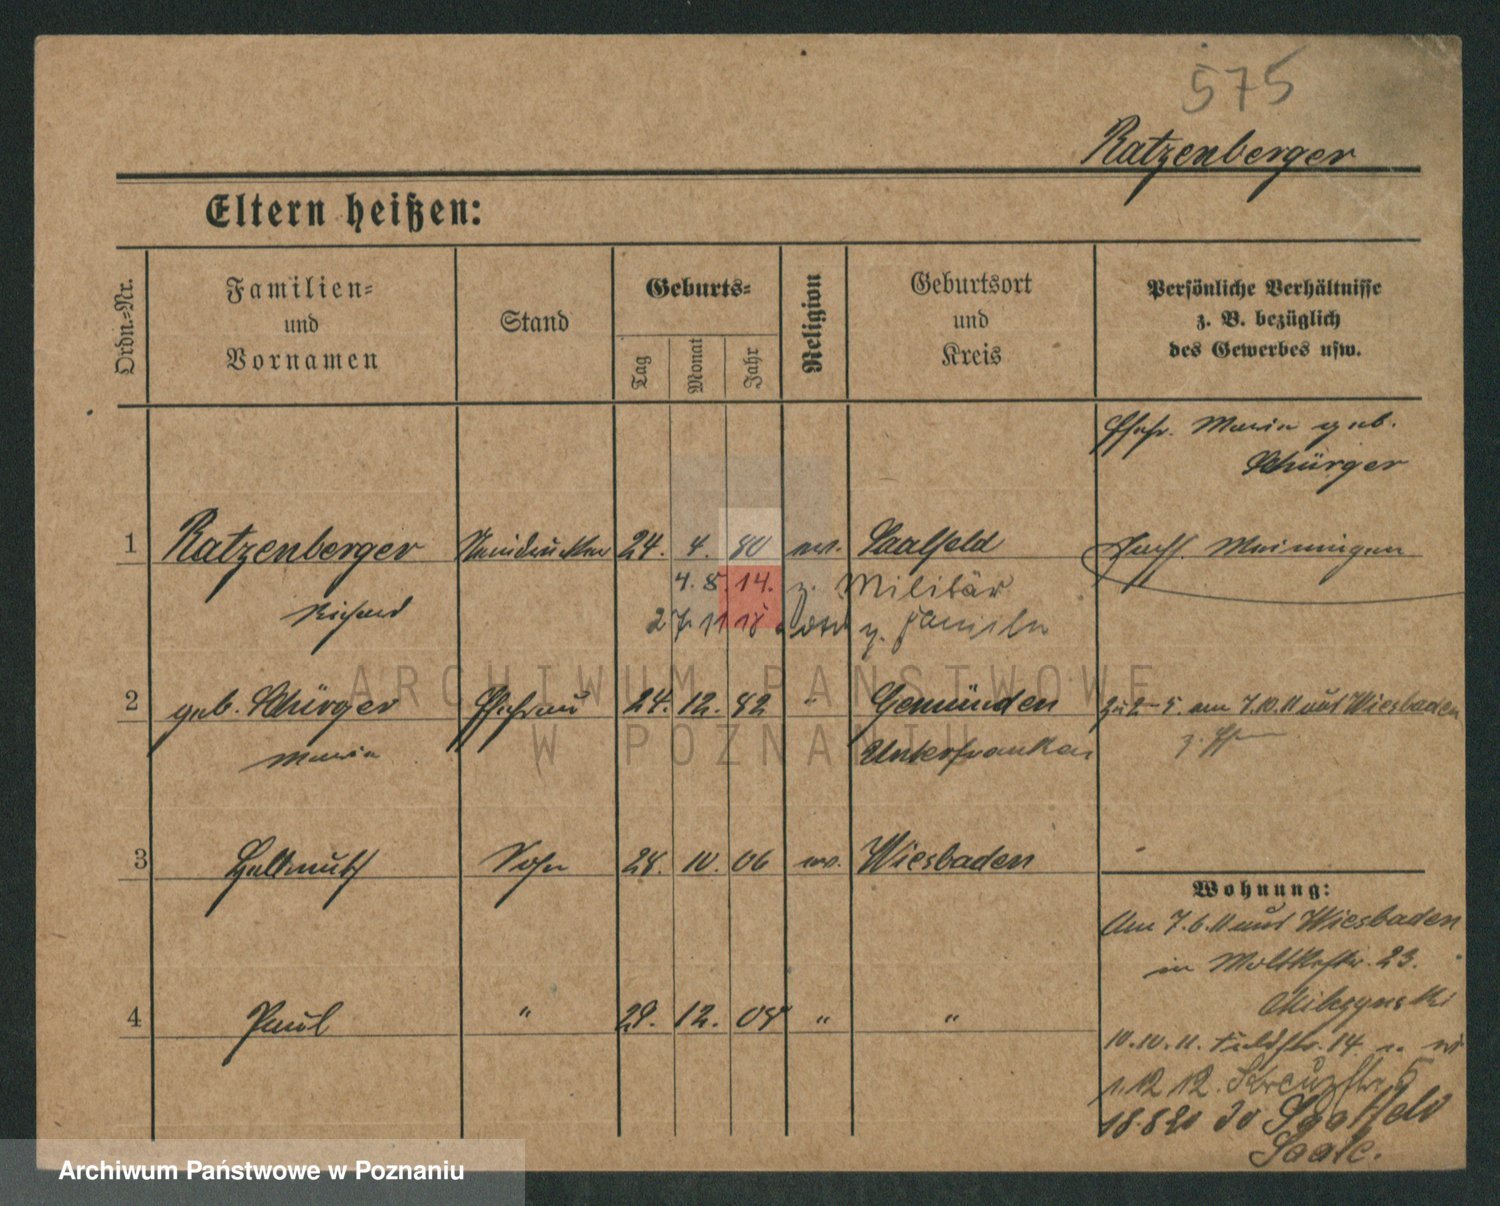 575
Ratzenberger
Eltern heißen:
Ordn.-Nr.
Familien-
und
Vornamen
Stand
Geburts-
Tag
Monat
Jahr
Religion
Geburtsort
und
Kreis
Persönliche Verhältnisse
z. B. bezüglich
des Gewerbes usw.
Ehefr. Maria geb.
Schürger
1 Ratzenberger Steindrucker 24. 4. 80 ev. Saalfeld Meiningen
Richard
4. 8. 14. z. Militär
27. 11 18 z. Familie
2 geb. Schürger Ehefrau 24. 12. 82 " Gemünden zu 2–5. am 7.10.11 aus Wiesbaden
Maria Unterfranken
3 Hellmuth Sohn 28. 10. 06 ev. Wiesbaden
Wohnung:
Am 7.6.11 aus Wiesbaden
in Moltkestr. 23.
4 Paul " 29. 12. 08 " "
10.10.11. Feldstr. 14
1.12 12. Kreuzstr. 5
18.8 20 Saalfeld
Saale.
ARCHIWUM PAŃSTWOWE
W POZNANIU
Archiwum Państwowe w Poznaniu